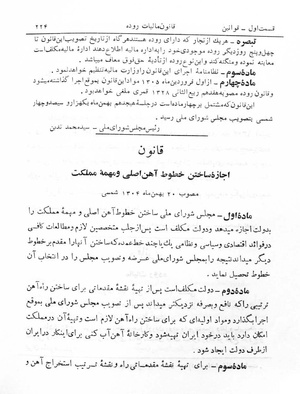 قسمت اول - قوانین
قانون مالیات روده
۲۲۴
تبصره - هریک از تجار که دارای روده هستند هرگاه از تاریخ تصویب این قانون تا
چهل و پنج روز دیگر روده موجودی خود را به اداره مالیه اطلاع دهند اداره مالیه مکلف است
معاینه نموده و منگنه کند و این نوع روده از تأدیهٔ حق لوف معاف میباشد.
مادهٔ سوم - نظامنامهٔ اجرای این قانون را وزارت مالیه تنظیم خواهد نمود.
مادهٔ چهارم - از اول فروردین ماه ۱۳۰۵ این قانون بموقع اجرا گذاشته میشود
و قانون روده مصوبه هفدهم ربیع الثانی ۱۳۲۸ قمری ملغی خواهد بود.
این قانون که مشتمل بر چهار ماده است در جلسهٔ هیجدهم بهمن ماه یکهزار و سیصد و چهار
شمسی بتصویب مجلس شورای ملی رسید.
رئیس مجلس شورای ملی - سید محمد تدین
قانون
اجازه ساختن خطوط آهن اصلی و مهمهٔ مملکت
مصوب ۲۰ بهمن ماه ۱۳۰۴ شمسی
مادهٔ اول - مجلس شورای ملی ساختن خطوط آهن اصلی و مهمهٔ مملکت را
بدولت اجازه میدهد و دولت مکلف است پس از جلب متخصصین لازم و مطالعات کافی
در فوائد اقتصادی و سیاسی و نظامی یک یا چند خط عمده که ساختن آنها را مقدم بر خطوط
دیگر میداند نتیجه را بمجلس شورای ملی عرضه و تصویب مجلس را در انتخاب آن
خطوط تحصیل نماید.
مادهٔ دوم - دولت مکلف است پس از تهیهٔ نقشهٔ مقدماتی برای ساختن راه آهن
ترتیبی را که نافع و بصرفه نزدیکتر میداند پس از تصویب مجلس شورای ملی بموقع
اجرا بگذارد و مواد اولیه‌ای که برای ساختن راه آهن لازم است و تهیهٔ آن در مملکت
امکان دارد باید در خود ایران تهیه شود و کارخانهٔ آهن آب کنی برای اینکار در ایران
از طرف دولت ایجاد شود.
مادهٔ سوم - برای تهیهٔ نقشهٔ مقدماتی راه و نقشهٔ ترتیب استخراج آهن و